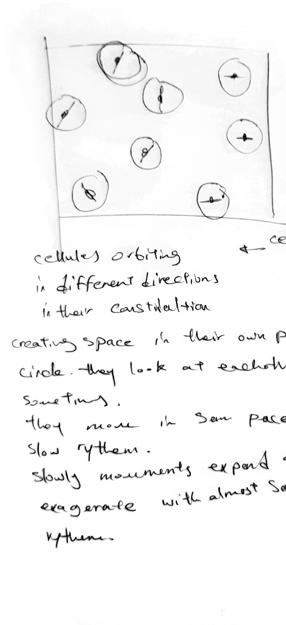 ce
cellules orbiting
in different directions
in their constelaltion
creating space in their own p
circle. they look at eachoth
someting.
they move in sam pace
slow rythem.
slowly mouments expend
exagerate with almost Sa
rythem.